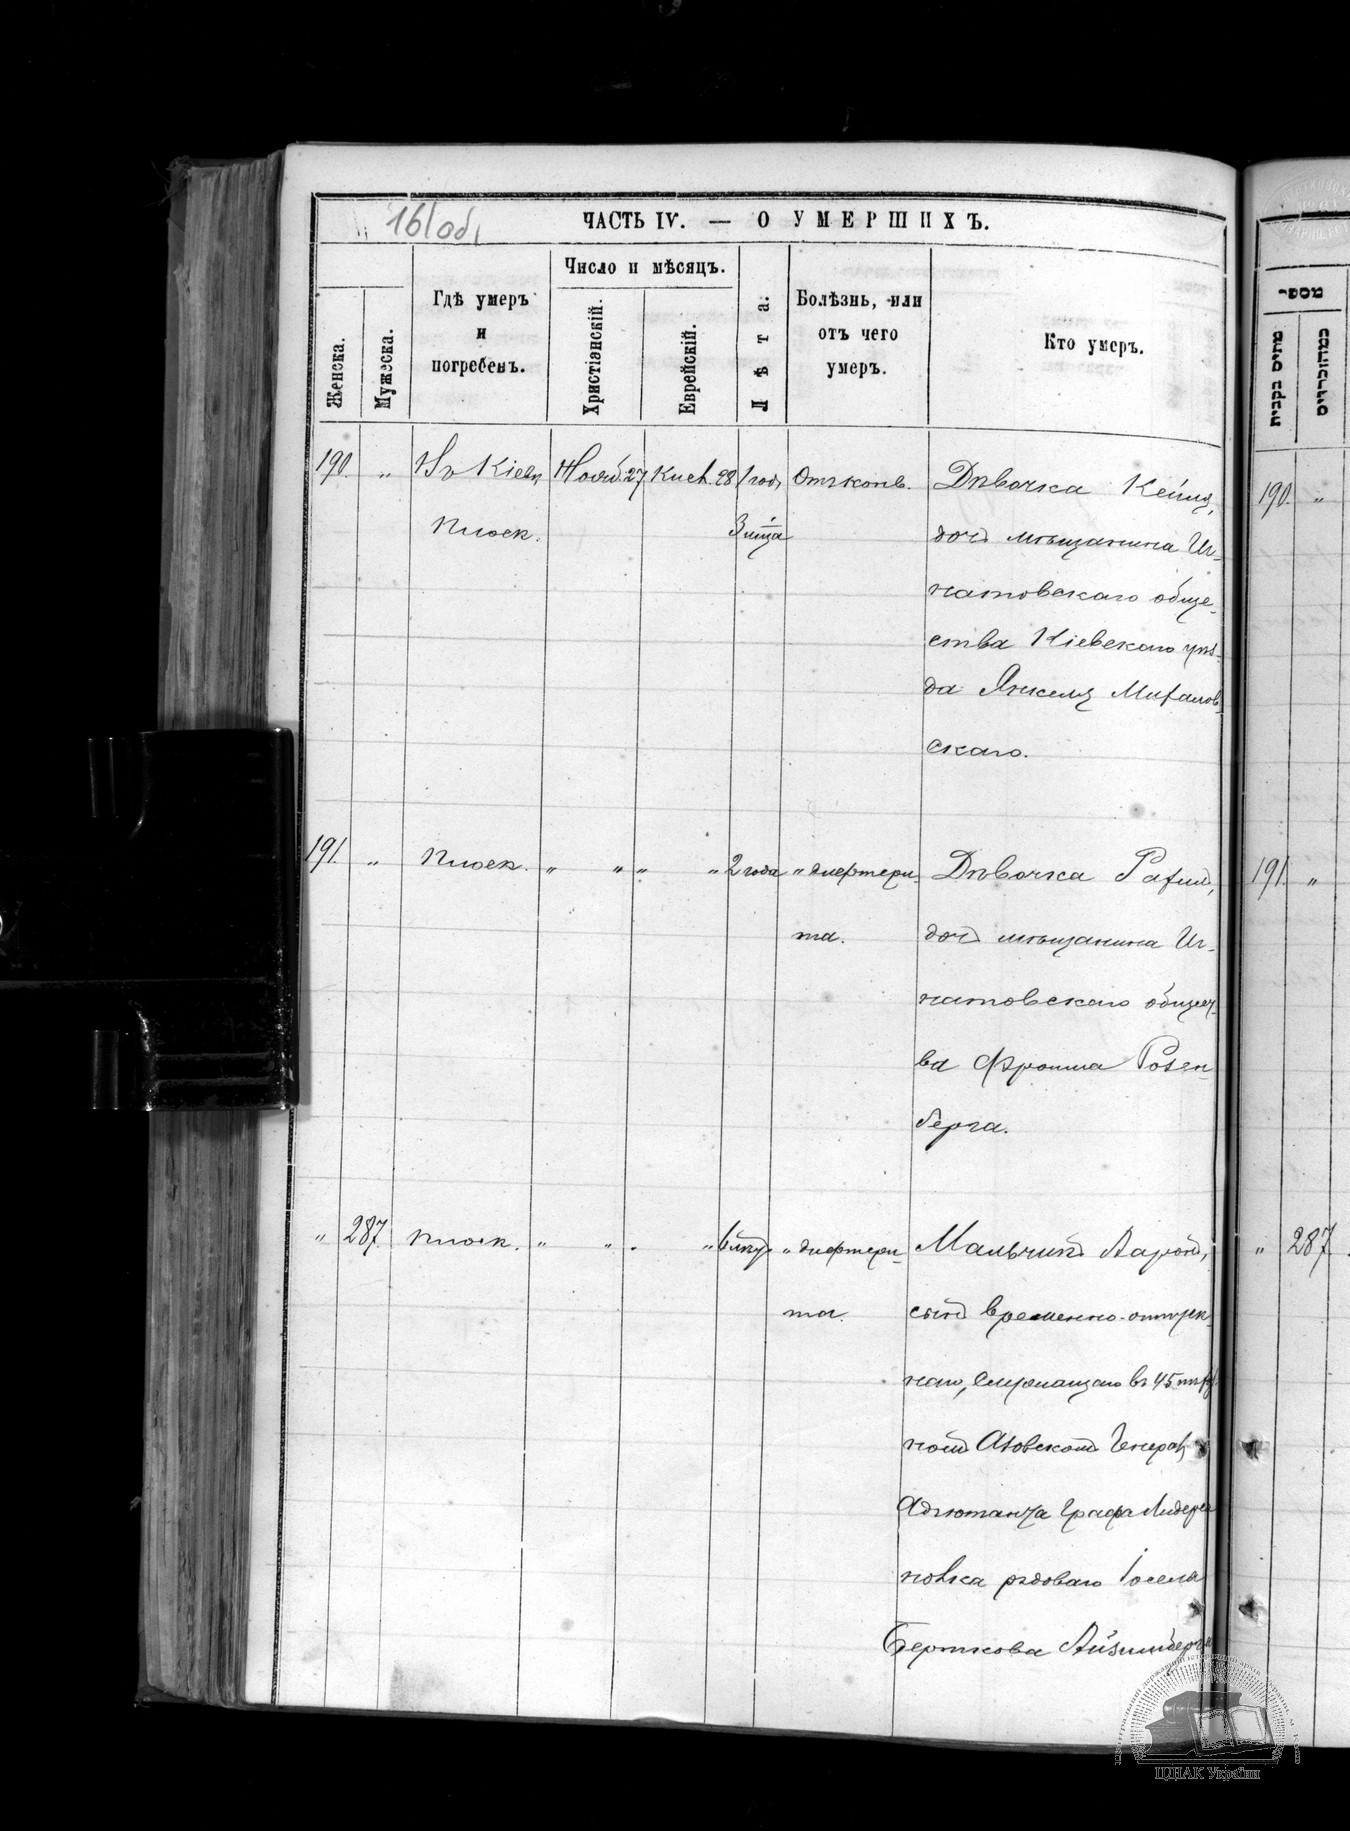 161об.
ЧАСТЬ IV. — О УМЕРШИХЪ.
Женска.
Мужеска.
Гдѣ умеръ
и
погребенъ.
Число и мѣсяцъ.
Христіанскій.
Еврейскій.
Лѣта.
Болѣзнь, или
отъ чего
умеръ.
Кто умеръ.
190. „ Въ Кіевѣ Нояб. 27 Кисл. 28 1 годъ
Дѣвочка Кейля,
3 м-ца
дочь мѣщанина Иг-
натовскаго обще-
ства Кіевскаго уѣз-
да Янкеля Михалов-
скаго.
191. „ „ „ „ „ 2 года „ дифтери-
та.
Дѣвочка Рахиль,
дочь мѣщанина Иг-
натовскаго общест-
ва Фроима Розен-
берга.
„ 287 „ „ „ „ 6 лѣтъ „ дифтери-
та.
Мальчикъ Ааронъ,
сынъ временно-отпуск-
наго, служащаго въ 45 пѣх
номъ Азовскомъ Генералъ
Адъютанта Графа Лидерса
полка рядоваго Іоселя
Беркова
מספר
מהיס הנקבות
מהזכרים
190. „
191 „
„ 287
ЦДІАК України